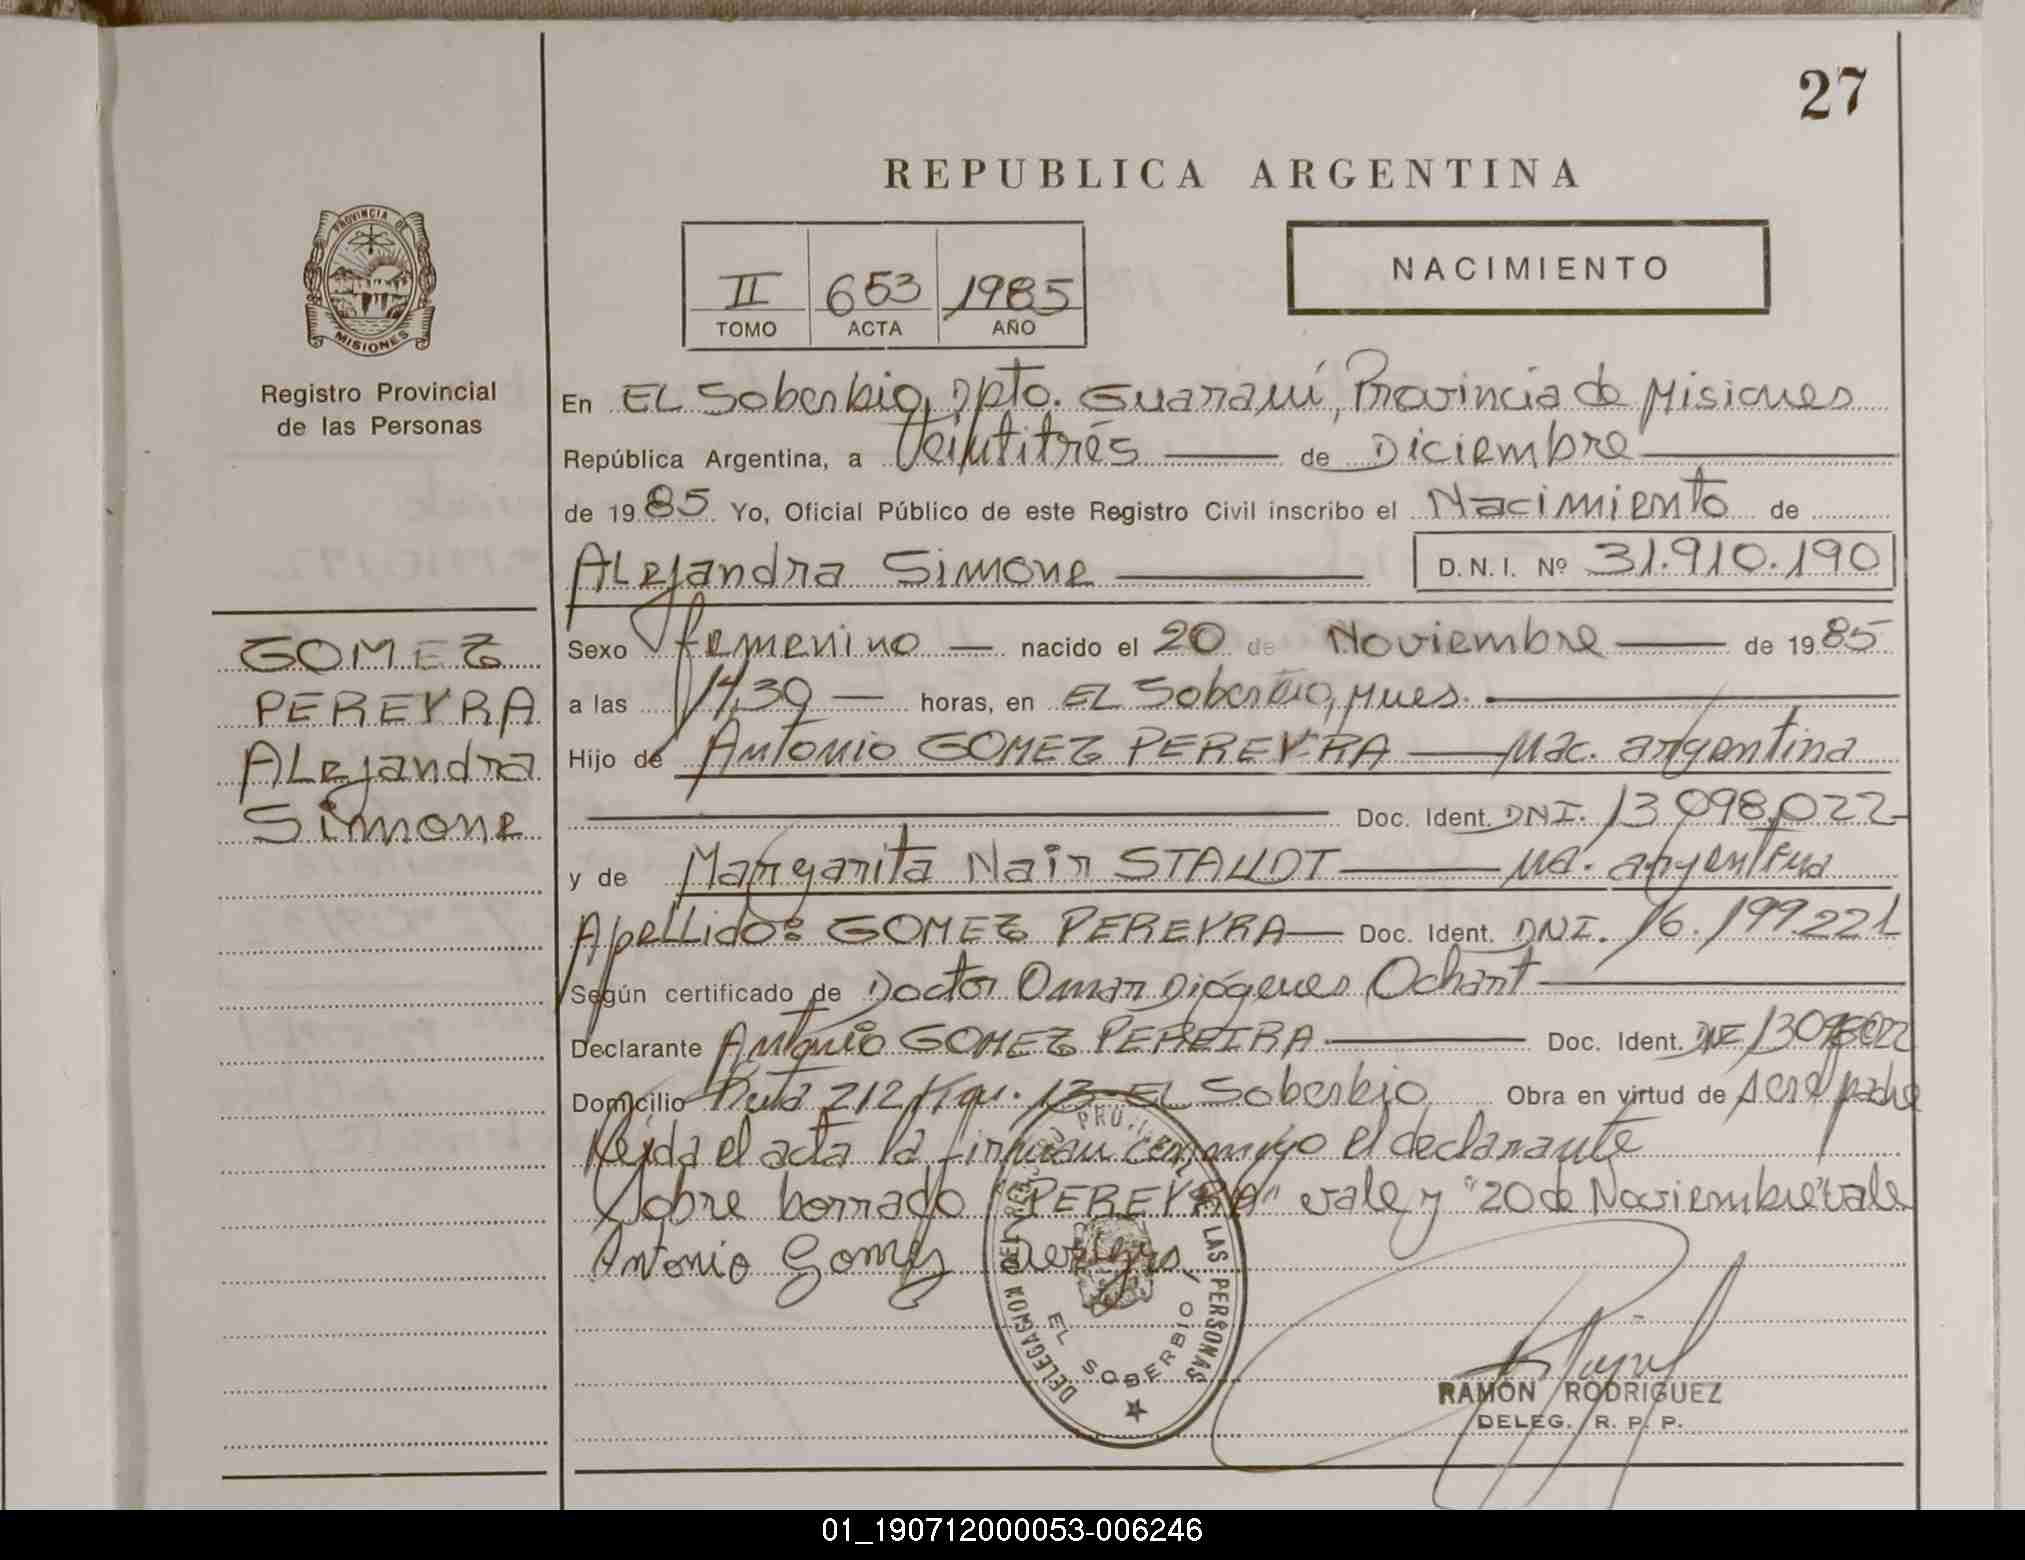 27
REPUBLICA ARGENTINA
PROVINCIA DE
MISIONES
Registro Provincial
de las Personas
II 653 1985
TOMO ACTA AÑO
NACIMIENTO
En EL Soberbio, Dpto. Guaraní, Provincia de Misiones
República Argentina, a Veintitrés de Diciembre
de 1985 Yo, Oficial Público de este Registro Civil inscribo el Nacimiento de
ALejandra Simone D.N.I. Nº 31.910.190
GOMEZ
PEREYRA
ALejandra
Simone
Sexo femenino nacido el 20 de Noviembre de 1985
a las 14,30 horas, en EL Soberbio, Mnes.
Hijo de Antonio GOMEZ PEREYRA Nac. argentina
Doc. Ident. DNI. 13.098.022
y de Margarita Nair STAUDT na. argentina
ApeLLido: GOMEZ PEREYRA Doc. Ident. DNI. 16.199.221
Según certificado de Doctor Omar Diógenes Ochart
Declarante Antonio GOMEZ PEREIRA Doc. Ident. DNI 13098022
Domicilio Ruta 212 Km. 13 EL Soberbio Obra en virtud de ser el padre
Leída el acta la firman conmigo el declarante
Sobre borrado "PEREYRA" vale y "20 de Noviembre" vale
Antonio Gomez
DELEGACION DEL LAS PERSONAS
EL SOBERBIO
RAMON RODRIGUEZ
DELEG. R. P. P.
01_190712000053-006246